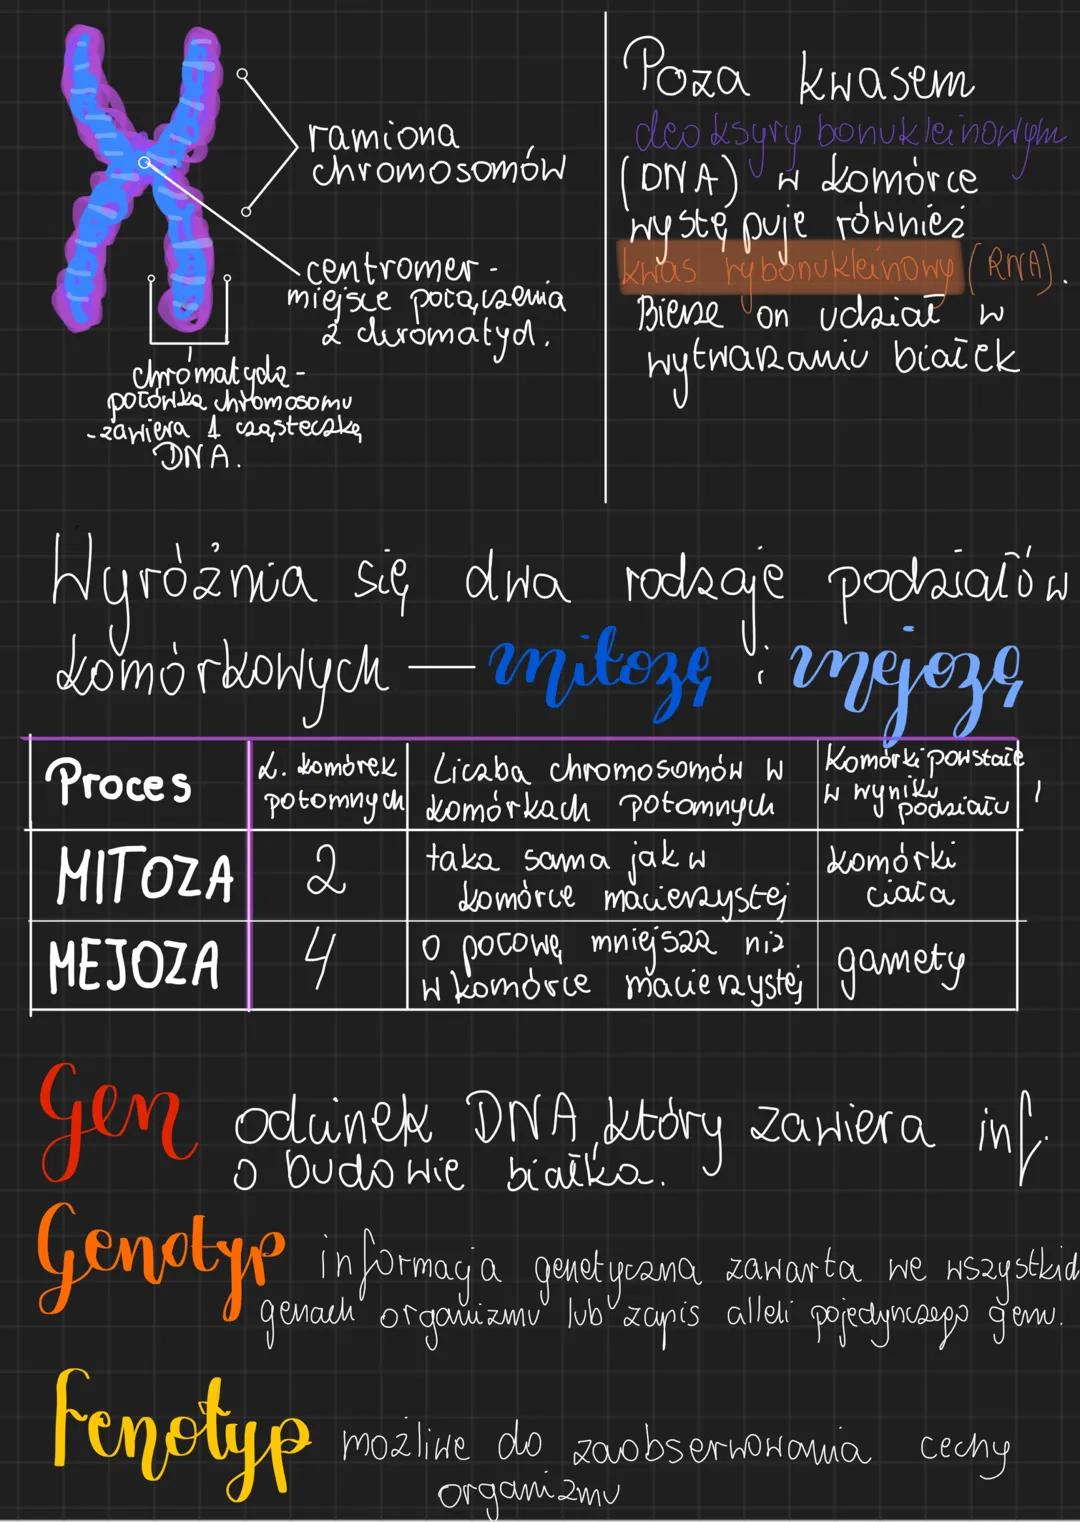 ramiona
chromosomów
centromer -
miejsce połączenia
2 chromatyd.
chromatyda -
połówka chromosomu
- zawiera 1 cząsteczkę
DNA.
Poza kwasem
deoksyrybonukleinowym
(DNA) w komórce
występuje również
kwas rybonukleinowy (RNA).
Bierze on udział w
wytwarzaniu białek
Wyróżnia się dwa rodzaje podziałów
komórkowych — mitozę i mejozę
Proces
L. komórek
potomnych
Liczba chromosomów w
komórkach potomnych
Komórki powstałe
w wyniku
podziału
MITOZA
2
taka sama jak w
komórce macierzystej
komórki
ciała
MEJOZA
4
o połowę mniejsza niż
w komórce macierzystej
gamety
Gen odcinek DNA, który zawiera inf.
o budowie białka.
Genotyp informacja genetyczna zawarta we wszystkich
genach organizmu lub zapis alleli pojedynczego genu.
Fenotyp możliwe do zaobserwowania cechy
organizmu